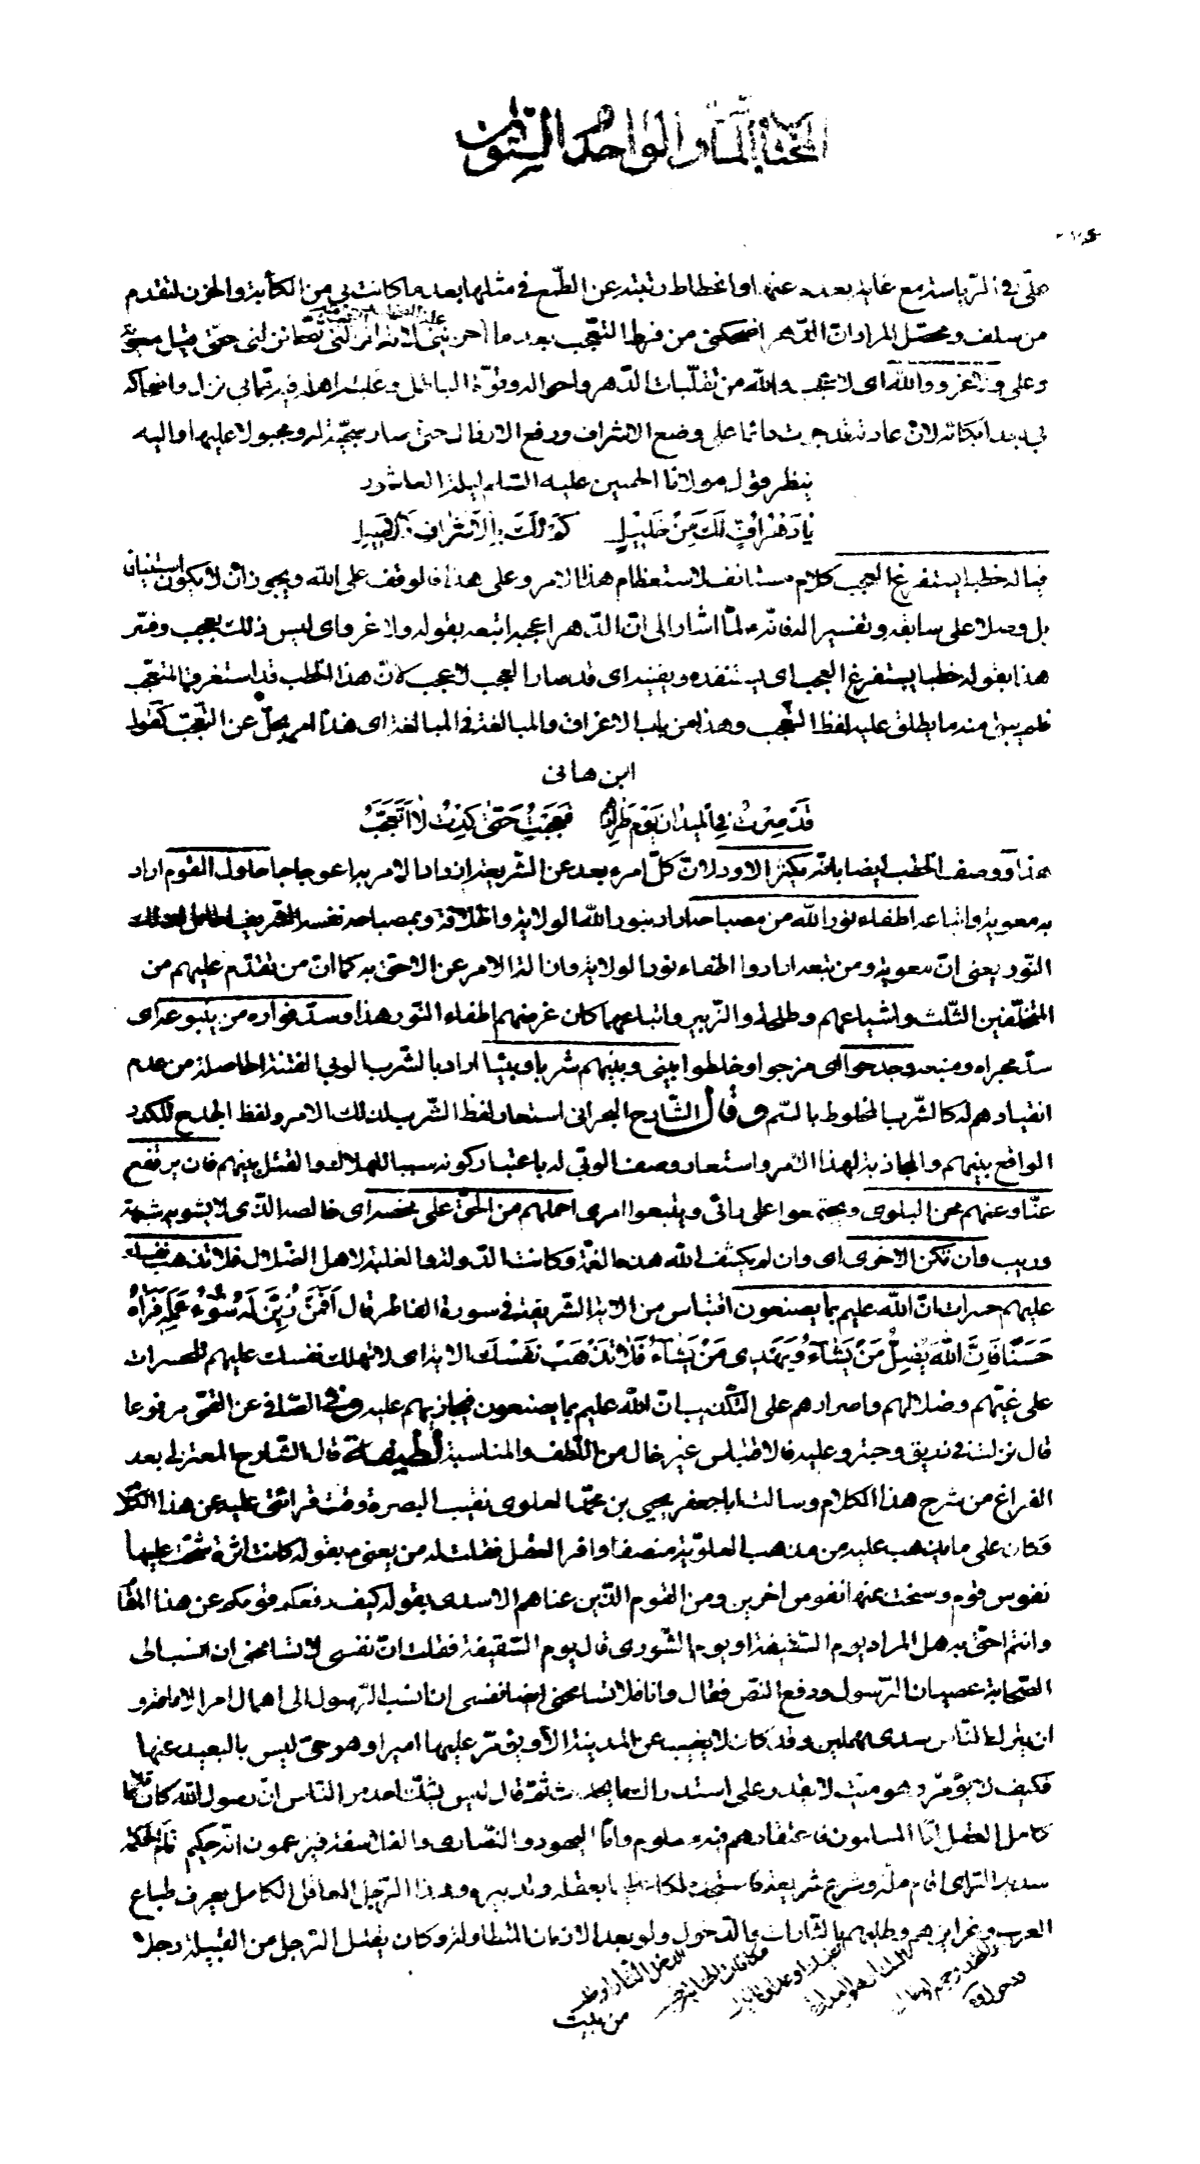 المختار المأة والواحد والستون
علىّ في الرّياسة مع غاية بعده عنها وانحطاط رتبته عن الطّمع في مثلها بعد ما كانت بي من الكأبة والحزن لتقدم
من سلف ومحصّل المراد انّ الدّهر اضحكني من فرط التعجّب بعد ما احزنني لانّه انزلني ثمّ انزلني حتّى قيل معوية
وعلي ولا غرو والله اى لا عجب والله من تقلّبات الدّهر واحواله وقوّة الباطل وغلبة اهله فيه فيما بي نزل واضحاكه
بي بعد ابكائه لانّ عادته قد جرت دائما على وضع الاشراف ورفع الارذال حتى صار سجيّة له ومجبولا عليها واليه
ينظر قول مولانا الحسين عليه السّلم ليلة العاشور
يٰا دَهْرُ اُفٍّ لَكَ مِنْ خَليٖلٍ كَمْ لَكَ بِالْاِشْرٰاقِ وَالْاَصيٖلِ
فيا له خطبا يستفرغ العجب كلام مستانف لاستعظام هذا الامر وعلى هذا فالوقف على الله ويجوز ان لا يكون استينافا
بل وصلا على سابقه وتفسيرا له فانّه لمّا اشار الى انّ الدّهر اعجبه اتبعه بقوله ولا غرو اى ليس ذلك بعجب وفسّر
هذا بقوله خطبا يستفرغ العجب اى يستنفده ويفنيه اى قد صار العجب لا عجب لانّ هذا الخطب قد استغرق التعجّب
فلم يبق منه ما يطلق عليه لفظ التعجّب وهذا من باب الاغراق والمبالغة في المبالغة اى هذا امر يجلّ عن التعجّب كقول
ابن هانى
قَدْ سِرْتُ فِي الْمَيْدٰانِ يَوْمَ طِرٰادِهِمْ فَعَجِبْتُ حَتّىٰ كِدْتُ لٰا اَتَعَجَّبُ
هذا ووصف الخطب ايضا بانّه يكثر الاود لانّ كلّ امرء بعد عن الشّريعة ازداد الامر به اعوجاجا حاول القوم اراد
به معوية واتباعه اطفاء نور الله من مصباحه اراد بنور الله الولاية والخلافة وبمصباحه نفسه الشّريف الحامل لذلك
النّور يعني انّ معوية ومن تبعه ارادوا اطفاء نور الولاية وازالة الامر عن الاحقّ به كما انّ من تقدّم عليهم من
المتخلّفين الثّلث واشياعهم وطلحة والزّبير واتباعهما كان غرضهم اطفاء النّور هذا وسدّ فواره من ينبوعه اى
سدّ مجراه ومنبعه وجدحوا اى مزجوا وخلطوا بيني وبينهم شربا وبيئا اراد بالشّرب الوبي الفتنة الحاصلة من عدم
انقيادهم له كالشّرب المخلوط بالسّم وقال الشّارح البحراني استعار لفظ الشّرب لذلك الامر ولفظ الجدح للكدر
الواقع بينهم والمجاذبة لهذا الامر واستعار وصف الوبيّ له باعتبار كونه سببا للهلاك والقتل بينهم فان يرتفع
عنّا وعنهم محن البلوى ويجتمعوا على رائى ويتبعوا امرى احملهم من الحقّ على محضه اى خالصه الّذى لا يشوبه شبهة
وريب وان تكن الاخرى اى وان لم يكشف الله هذه الغمّة وكانت الدّولة والغلبة لاهل الضّلال فلا تذهب نفسك
عليهم حسرات انّ الله عليم بما يصنعون اقتباس من الاية الشّريفة في سورة الفاطر قال اَفَمَنْ زُيِّنَ لَهُ سُوۤءُ عَمَلِهِ فَرَاٰهُ
حَسَنًا فَاِنَّ اللهَ يُضِلُّ مَنْ يَشٰاۤءُ وَيَهْدِى مَنْ يَشٰاۤءُ فَلٰا تَذْهَبْ نَفْسُكَ الاية اى لا تهلك نفسك عليهم للحسرات
على غيّهم وضلالهم واصرارهم على التّكذيب انّ الله عليم بما يصنعون فيجازيهم عليه وفي الصّافي عن القمّى مرفوعا
قال نزلت في زريق وحبتر وعليه فالاقتباس غير خال من اللّطف والمناسبة لطيفة قال الشّارح المعتزلي بعد
الفراغ من شرح هذا الكلام وسالت اباجعفر يحيى بن محمّد العلوى نقيب البصرة وقت قرائتى عليه عن هذا الكلام
وكان على ما يذهب عليه من مذهب العلويّة منصفا وافر العقل فقلت له من يعنى ع بقوله كانت اثرة شحّت عليها
نفوس قوم وسخت عنها نفوس اخرين ومن القوم الّذين عناهم الاسدى بقوله كيف دفعكم قومكم عن هذا المقام
وانتم احقّ به هل المراد يوم السّقيفة او يوم الشّورى قال يوم السّقيفة فقلت انّ نفسى لا تسامحنى ان انسب الى
الصّحابة عصيان الرّسول ودفع النصّ فقال وانا فلا تسامحنى ايضا نفسى ان انسب الرّسول الى اهمال امر الامامة و
ان يترك النّاس سدى مهملين وقد كان لا يغيب عن المدينة الّا ويؤمّر عليها اميرا وهو حىّ ليس بالبعيد عنها
فكيف لا يؤمّر وهو ميّت لا يقدر على استدراك ما يحدث ثمّ قال ليس يشكّ احد من النّاس انّ رسول الله كان عاقلا
كامل العقل امّا المسلمون فاعتقادهم فيه معلوم وامّا اليهود والنّصارى والفلاسفة فيزعمون انّه حكيم تامّ الحكمة
سديد الرّاى اقام ملّة وشرع شريعة فاستجدّ ملكا عظيما بعقله وتدبيره وهذا الرّجل العاقل الكامل يعرف طباع
العرب وغرايزهم وطلبهم بالثّارات والذّحول ولو بعد الازمان المتطاولة وكان يقتل الرّجل من القبيلة رجلا
من بيت